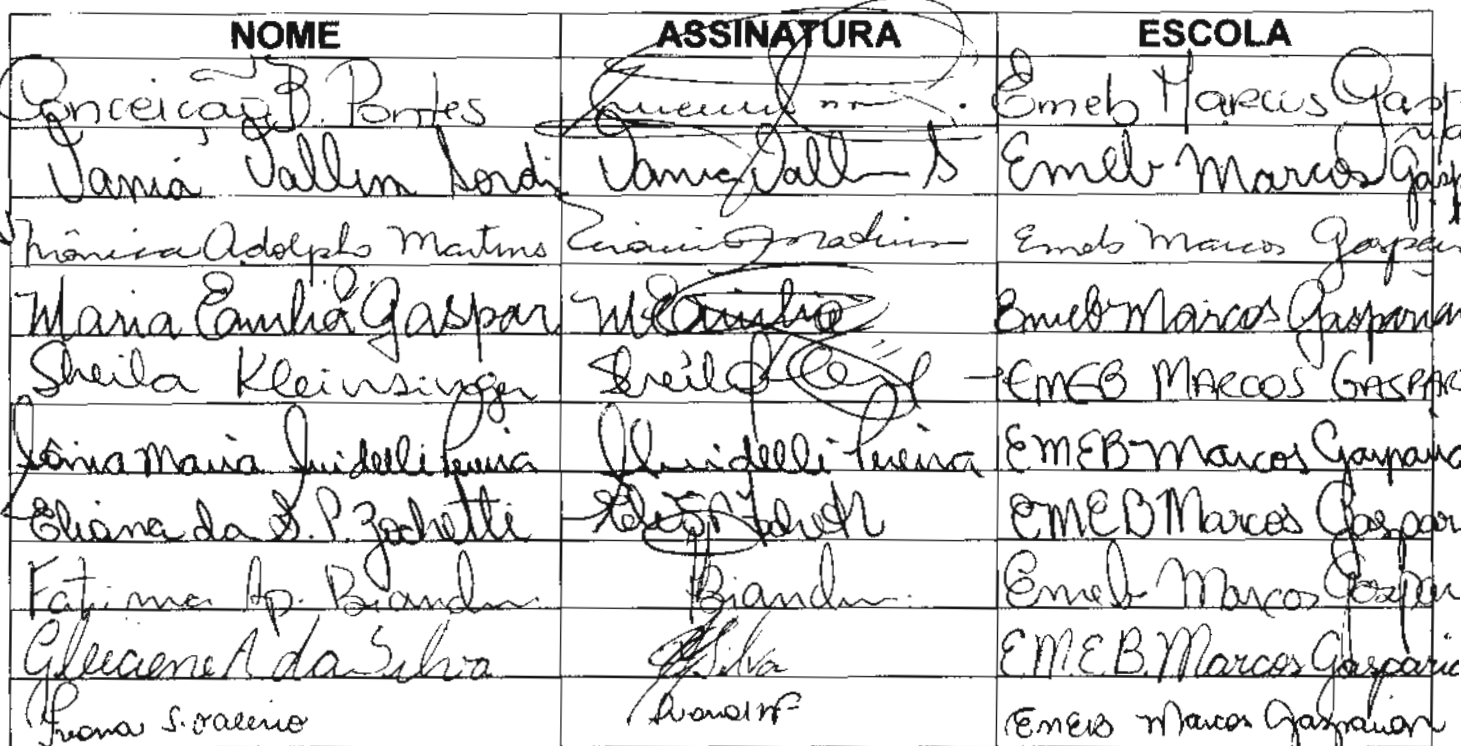 NOME ASSINATURA ESCOLA
Conceição B. Pontes Emeb Marcos Gaspa
Vania Vallim Sordi Vania Vall S Emeb Marcos Gasp
Mônica Adolpho Martins Emeb Marcos Gaspari
Maria Emilia Gaspar M Emilia Emeb Marcos Gasparian
Sheila Kleinsinger Sheila EMEB MARCOS GASPAR
Sônia Maria Guidelli Pereira Guidelli Pereira EMEB Marcos Gasparia
Eliana da S. P. Zochetti EMEB Marcos Gaspar
Fatima Ap. Biandu Biandu Emeb Marcos Gaspar
Gleiciene A da Silva Silva E.M.E.B. Marcos Gasparia
Ivana S. Valerio EMEB Marcos Gasparian